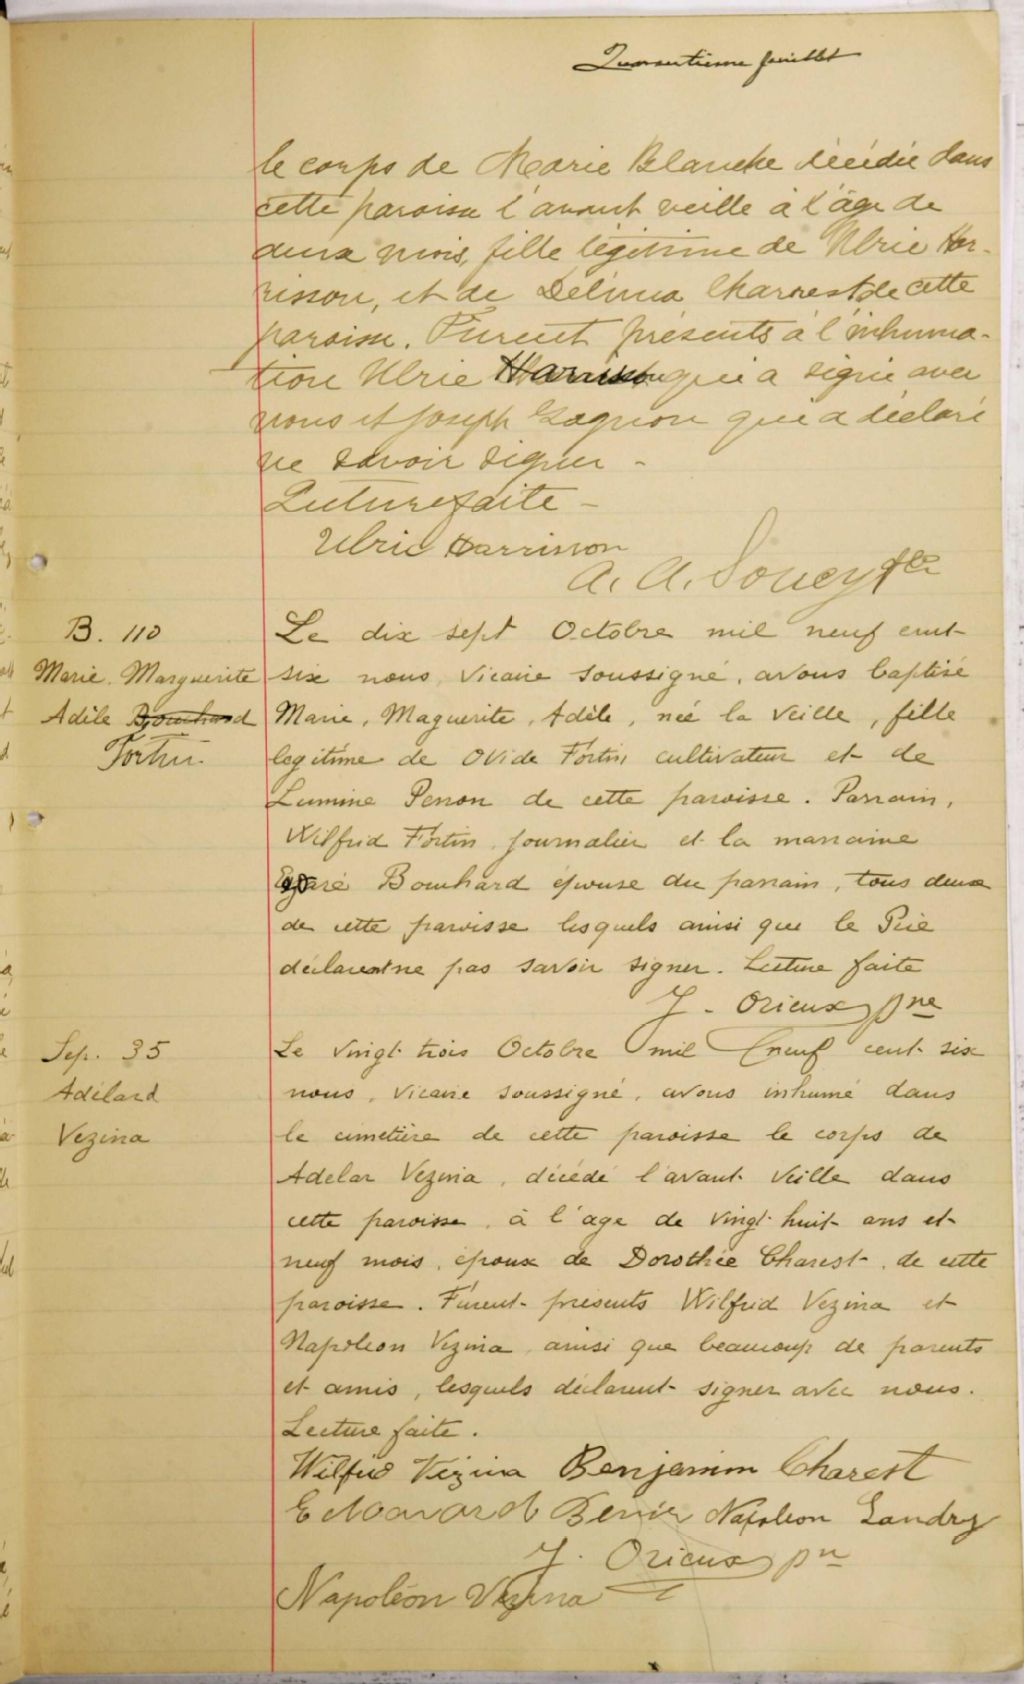 Quarantieme feuillet
le corps de Marie Blanche décédée dans
cette paroisse l'avant veille à l'âge de
deux mois, fille légitime de Ulric Har-
risson, et de Délima Charrest de cette
paroisse. Furent présents à l'inhuma-
tion Ulric Harrisson qui a signé avec
nous et Joseph Gagnon qui a déclaré
ne savoir signer -
Lecture faite -
Ulric Harrisson
A. A. Soucy Ptre
B. 110
Marie. Marguerite
Adèle Bouchard
Fortin.
Le dix sept Octobre mil neuf cent
six nous, Vicaire soussigné, avons baptisé
Marie, Maguerite, Adèle, née la veille, fille
legitime de Ovide Fortin cultivateur et de
Lumine Perron de cette paroisse. Parrain,
Wilfrid Fortin journalier et la marraine
Bouchard épouse du parrain, tous deux
de cette paroisse lesquels ainsi que le Père
déclarent ne pas savoir signer. Lecture faite
J. Orieux ptre
Sep. 35
Adélard
Vezina
Le vingt trois Octobre mil neuf cent six
nous, Vicaire soussigné, avons inhumé dans
le cimetière de cette paroisse le corps de
Adelar Vezina, décédé l'avant veille dans
cette paroisse, à l'age de vingt huit ans et
neuf mois, époux de Dorothée Charest, de cette
paroisse. Furent présents Wilfrid Vezina et
Napoleon Vezina, ainsi que beaucoup de parents
et amis, lesquels déclarent signer avec nous.
Lecture faite.
Wilfrid Vezina Benjamin Charest
Edouard Napoleon Landry
J. Orieux ptre
Napoléon Vezina